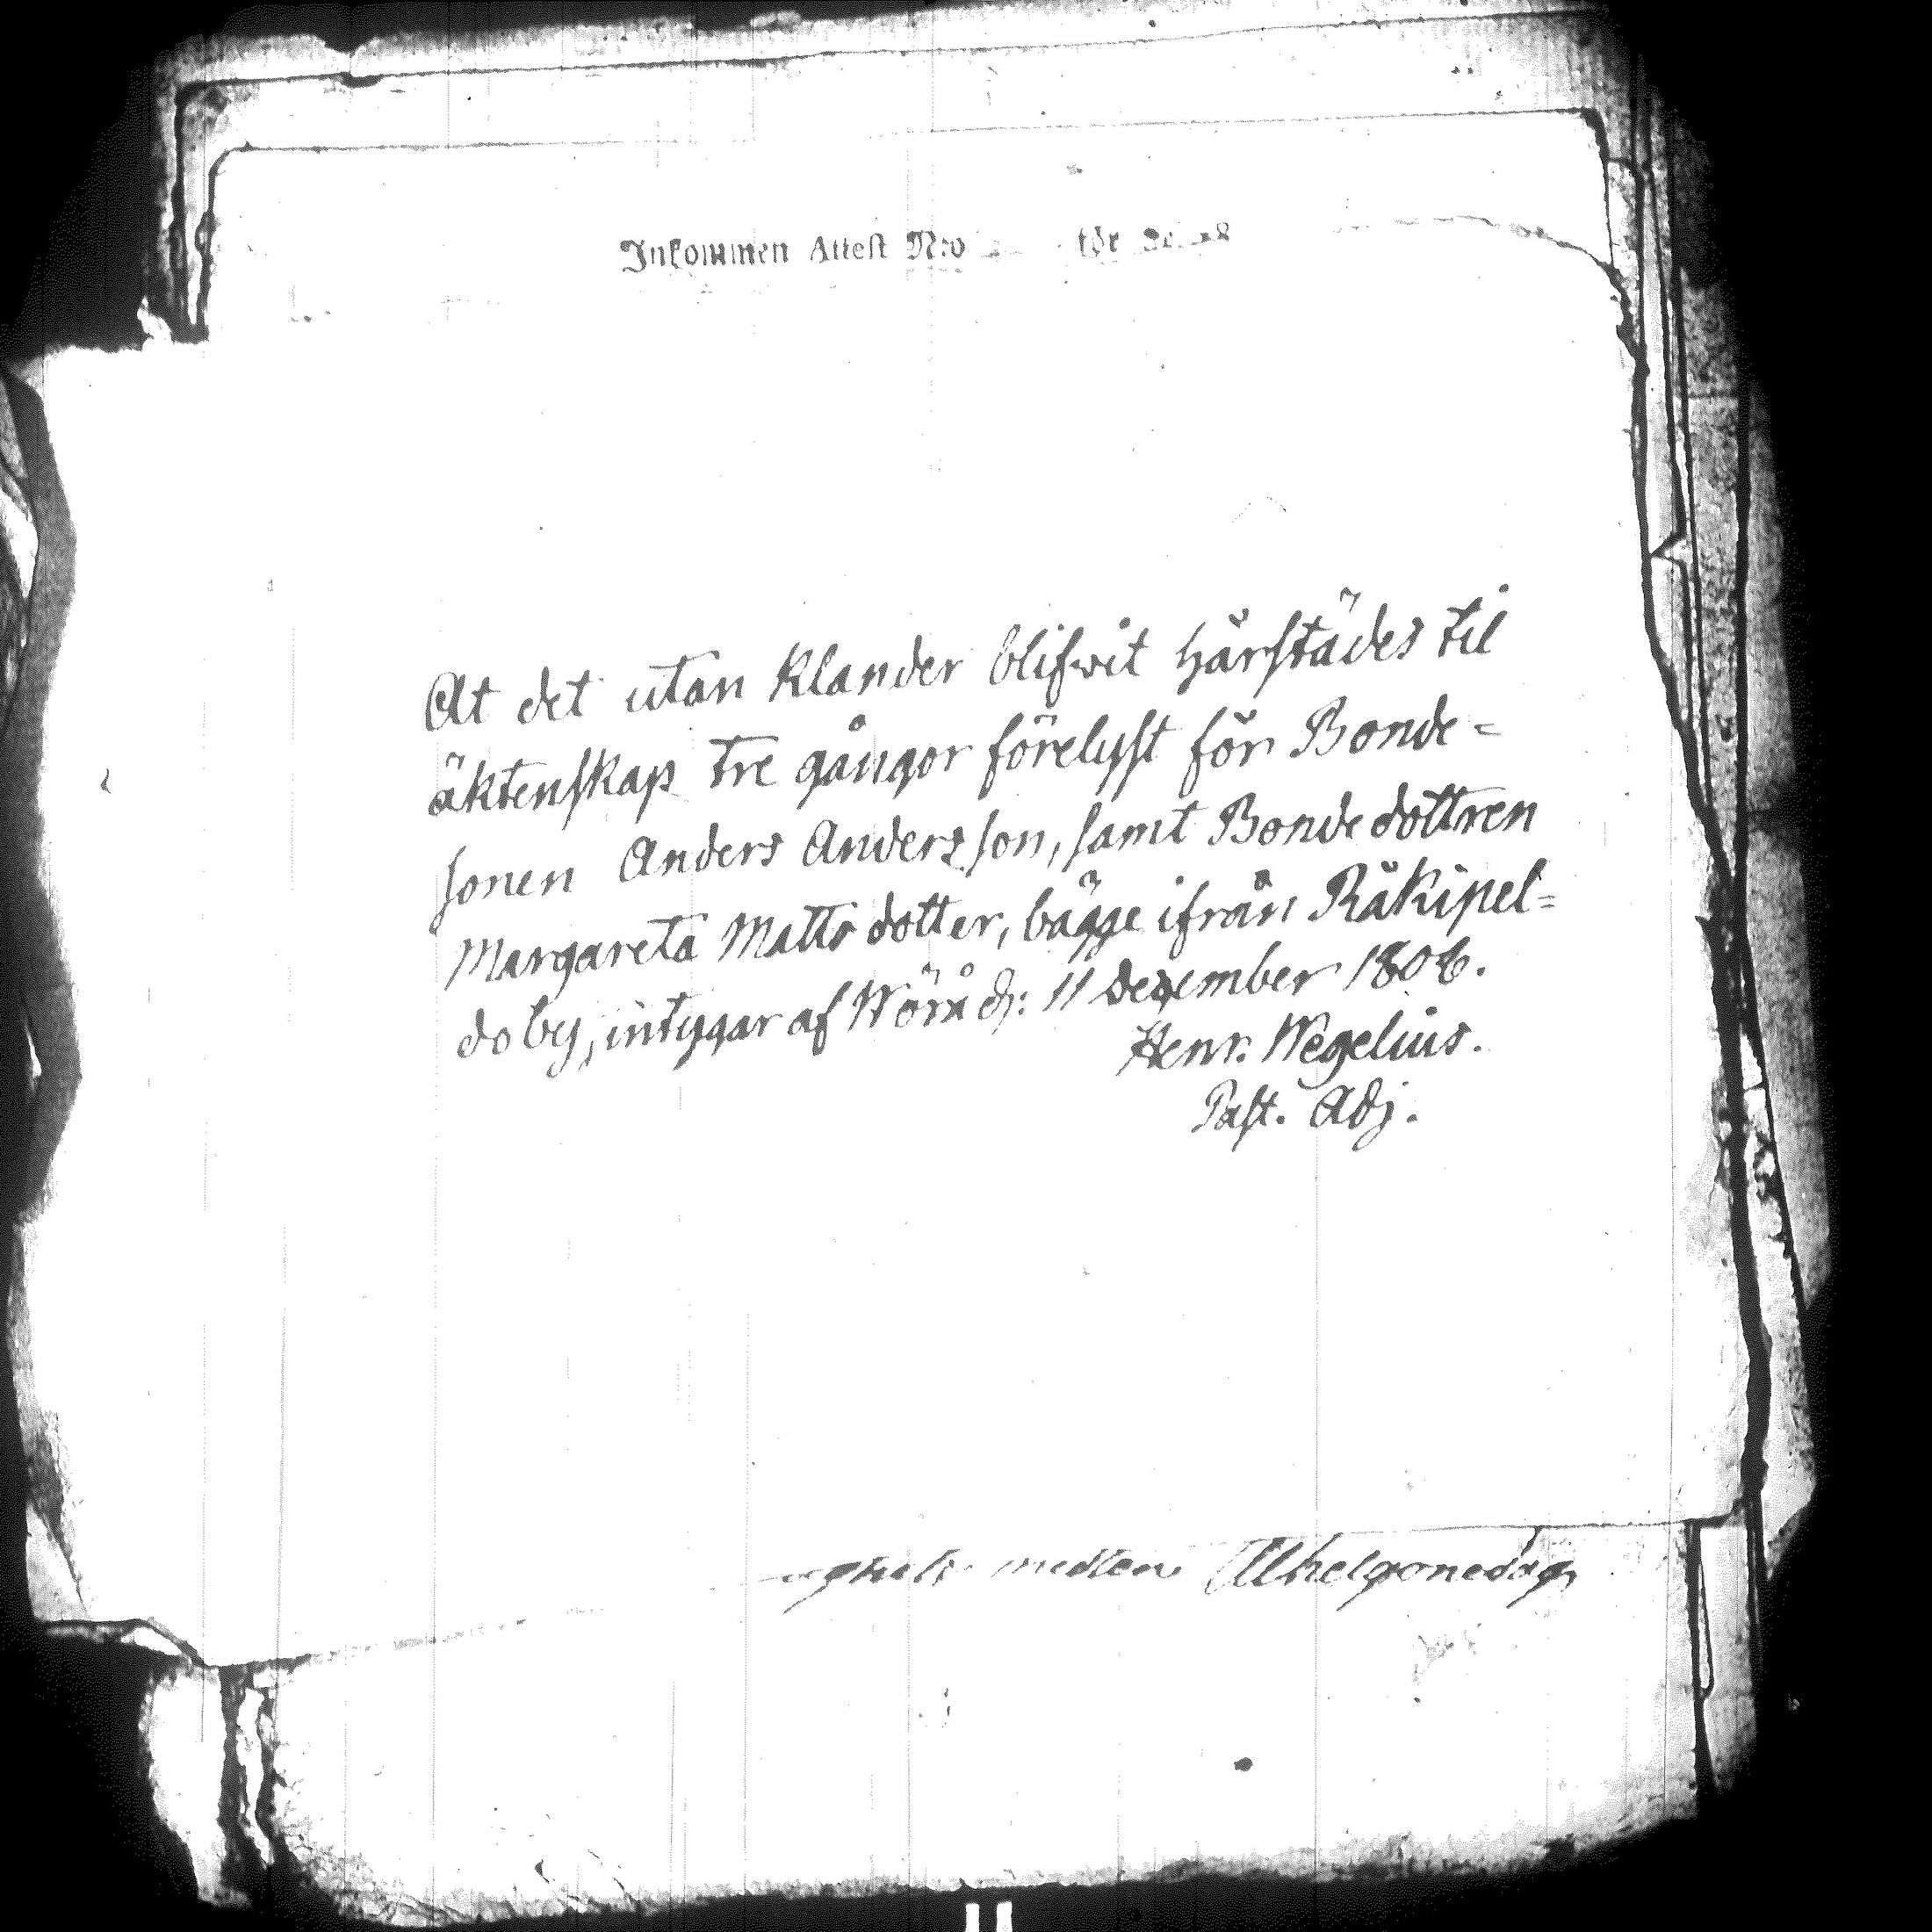 Inkommen Attest N:o för
At det utan klander blifwit härstädes til
äktenskap tre gångor förelyst för Bonde=
sonen Anders Andersson, samt Bondedottren
Margareta Matts dotter, bägge ifrån Räkipel=
do by, intygar af Wörå d: 11 december 1806.
Henr. Wegelius.
Past. Adj.
medlen Allhelgonedag